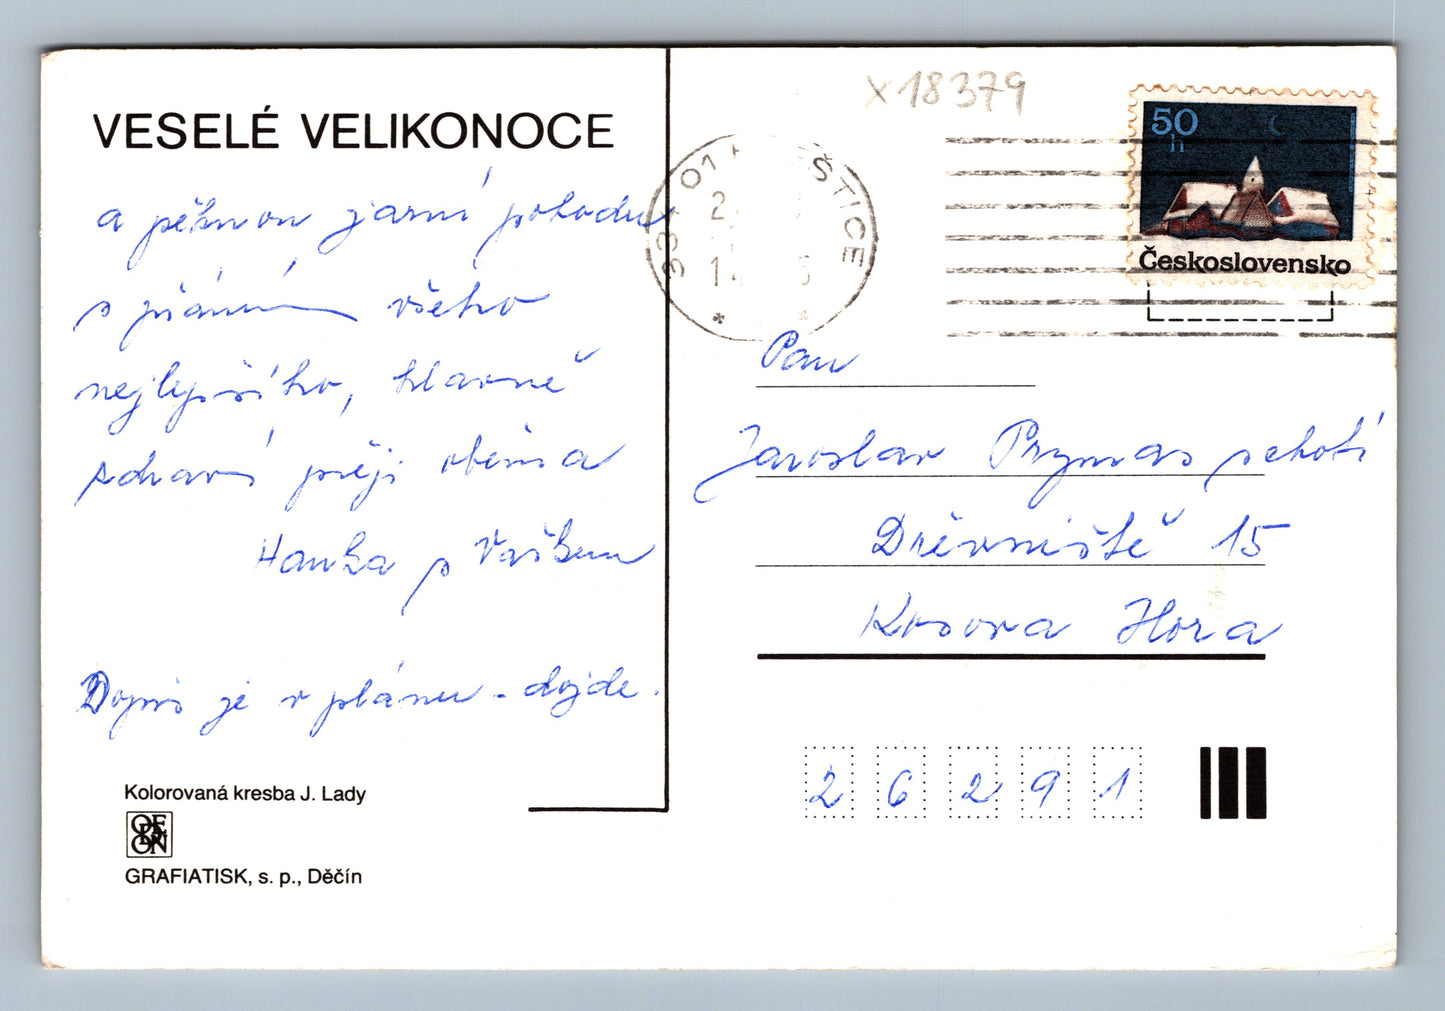 VESELÉ VELIKONOCE
a pěknou jarní pohodu
s přáním všeho
nejlepšího, hlavně
zdraví přeji oběma
Hanka s Vaškem
Dopis je v plánu - dojde.
Kolorovaná kresba J. Lady
ODEON
GRAFIATISK, s. p., Děčín
x18379
334 01 ŠTICE
50
h
Československo
Pan
Jaroslav Prymas s chotí
Dřevniště 15
Kosova Hora
26291